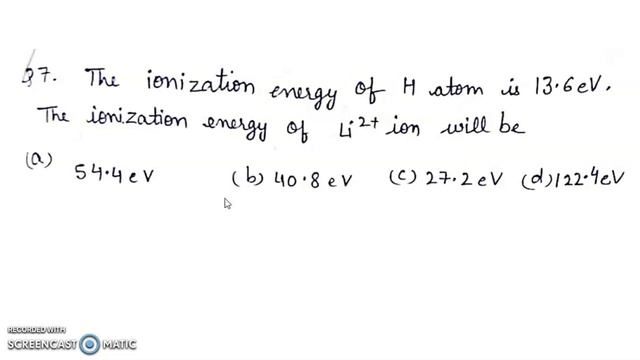 37. The ionization energy of H atom is 13.6eV.
The ionization energy of Li2+ ion will be
(a) 54.4 eV (b) 40.8 eV (c) 27.2 eV (d) 122.4eV
RECORDED WITH
SCREENCAST MATIC